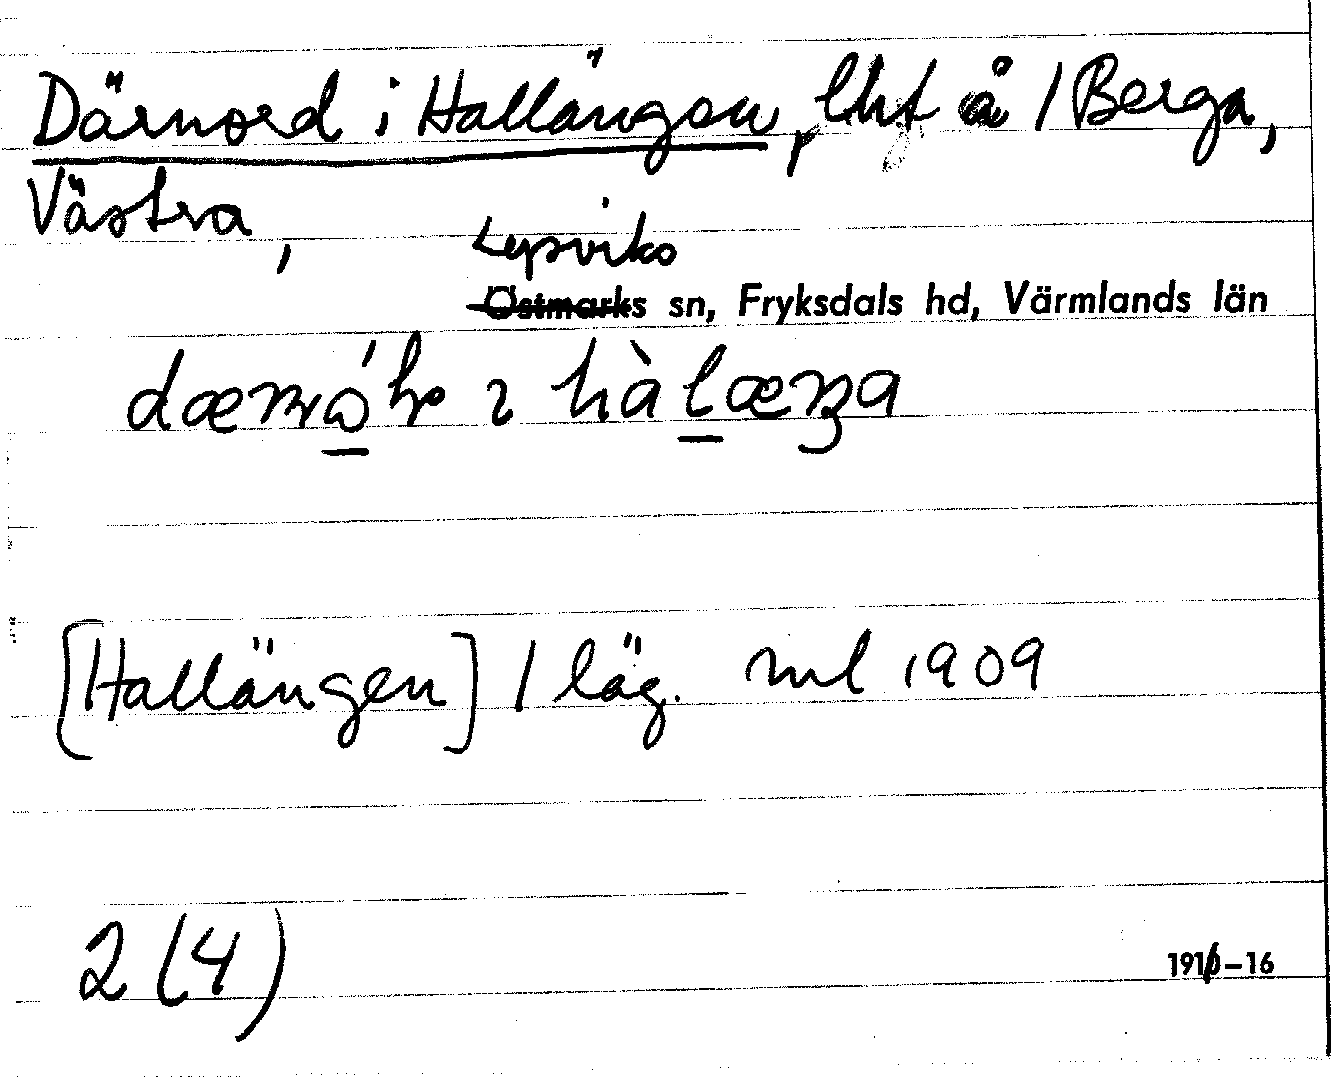 Därnord i Hallängen, lht å / Berga,
Västra,
Lysviks
Östmarks sn, Fryksdals hd, Värmlands län
[Hallängen] / läg. ml 1909
2 (4)
1910-16